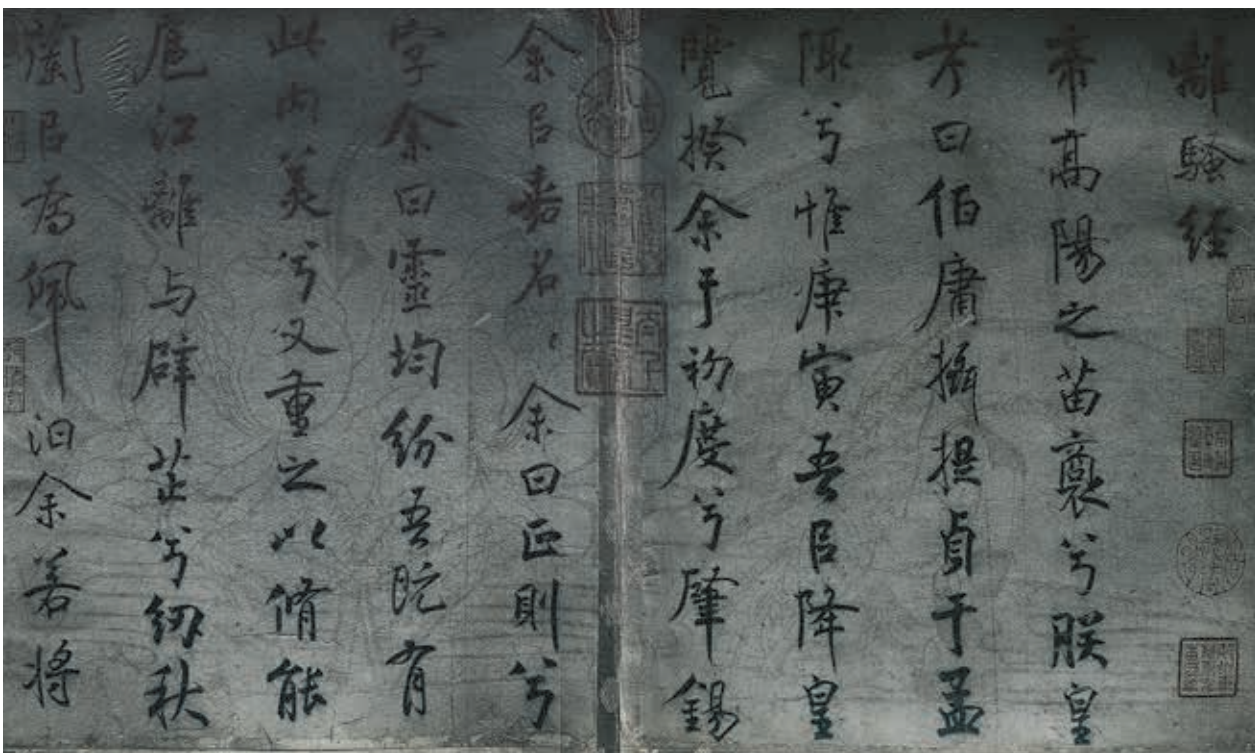 離騷經
帝高陽之苗裔兮朕皇
考曰伯庸攝提貞于孟
陬兮惟庚寅吾㠯降皇
覽揆余于初度兮肇錫
余㠯嘉名余曰正則兮
字余曰靈均紛吾既有
此内美兮又重之以脩能
扈江離与辟芷兮紉秋
蘭㠯為佩汩余若将